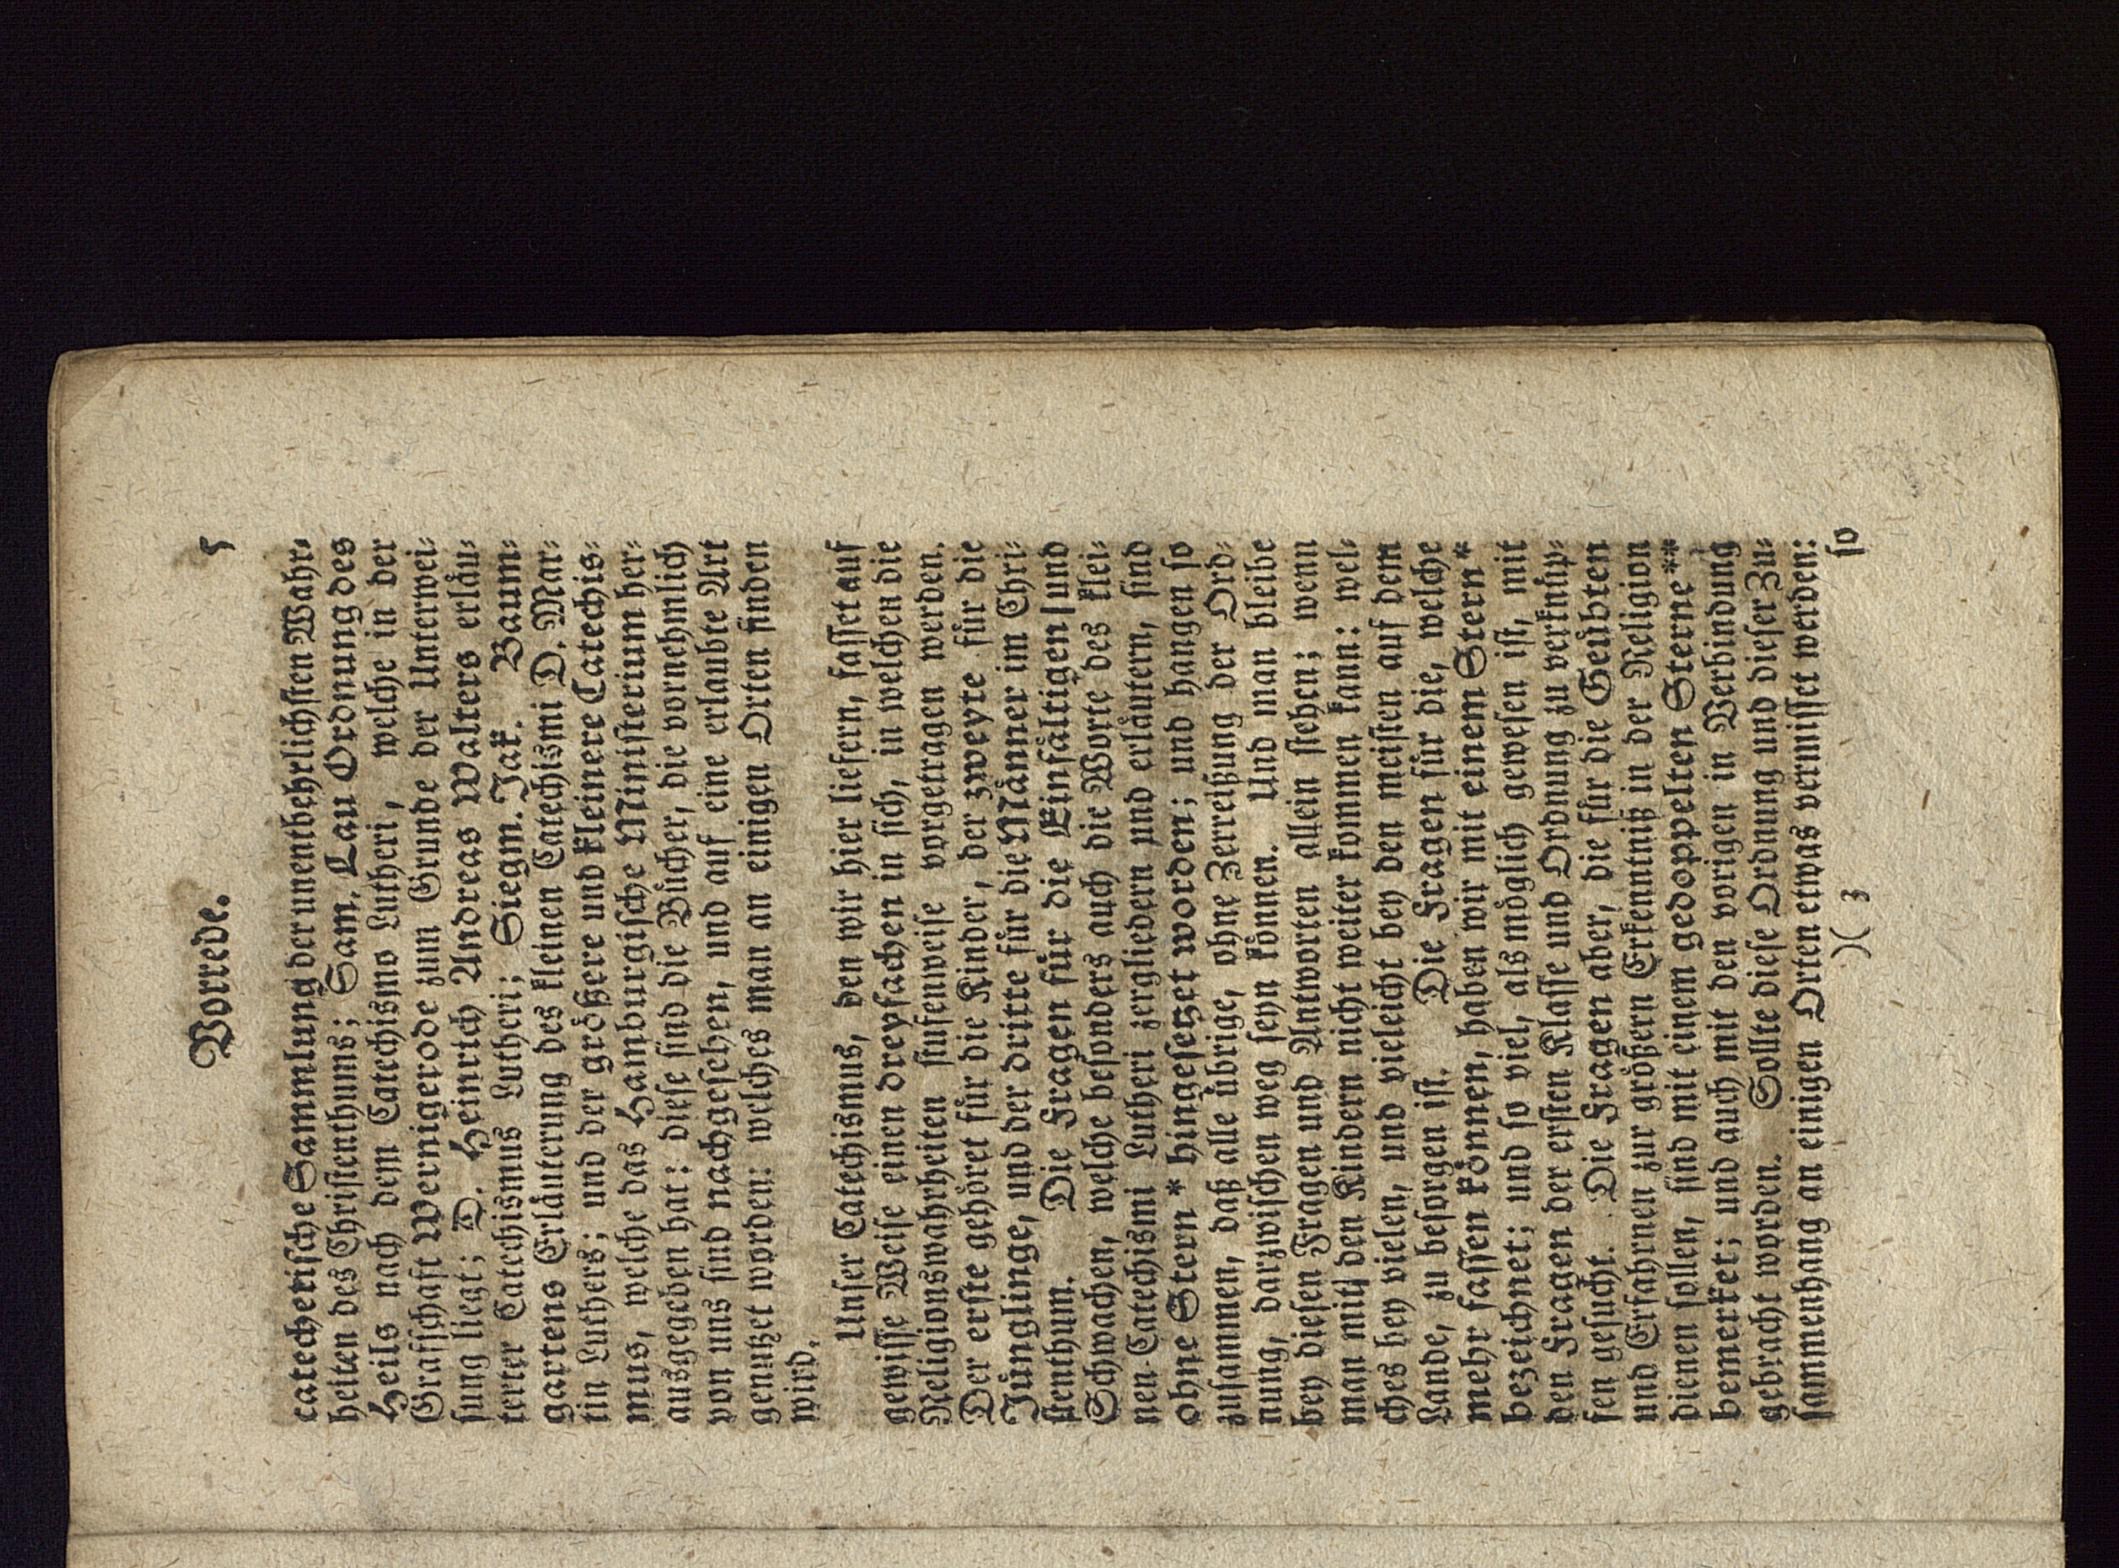 Vorrede. 5
catechetische Sammlung der unentbehrlichsten Wahr-
heiten des Christenthums; Sam. Lau Ordnung des
Heils nach dem Catechismo Lutheri, welche in der
Grafschaft Wernigerode zum Grunde der Unterwei-
sung liegt; D. Heinrich Andreas Walters erläu-
terter Catechismus Lutheri; Siegm. Jak. Baum-
gartens Erläuterung des kleinen Catechismi D. Mar-
tin Luthers; und der größere und kleinere Catechis-
mus, welche das Hamburgische Ministerium her-
ausgegeben hat: diese sind die Bücher, die vornehmlich
von uns sind nachgesehen, und auf eine erlaubte Art
genutzet worden: welches man an einigen Orten finden
wird.
Unser Catechismus, den wir hier liefern, fasset auf
gewisse Weise einen dreyfachen in sich, in welchen die
Religionswahrheiten stufenweise vorgetragen werden.
Der erste gehöret für die Kinder, der zweyte für die
Jünglinge, und der dritte für die Männer im Chri-
stenthum. Die Fragen für die Einfältigen und
Schwachen, welche besonders auch die Worte des klei-
nen Catechismi Lutheri zergliedern und erläutern, sind
ohne Stern * hingesetzet worden; und hangen so
zusammen, daß alle übrige, ohne Zerreißung der Ord-
nung, darzwischen weg seyn können. Und man bleibe
bey diesen Fragen und Antworten allein stehen; wenn
man mit den Kindern nicht weiter kommen kann: wel-
ches bey vielen, und vieleicht bey den meisten auf dem
Lande, zu besorgen ist. Die Fragen für die, welche
mehr fassen können, haben wir mit einem Stern *
bezeichnet; und so viel, als möglich gewesen ist, mit
den Fragen der ersten Klasse und Ordnung zu verknüp-
fen gesucht. Die Fragen aber, die für die Geübten
und Erfahrnen zur größern Erkenntniß in der Religion
dienen sollen, sind mit einem gedoppelten Sterne **
bemerket; und auch mit den vorigen in Verbindung
gebracht worden. Sollte diese Ordnung und dieser Zu-
sammenhang an einigen Orten etwas vermisset werden:
)( 3 so